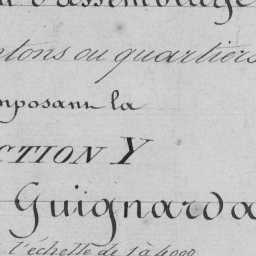 d'assemblage
ntons ou quartiers
mposant la
CTION Y
Guignarda
l'échelle de 1 à 4000